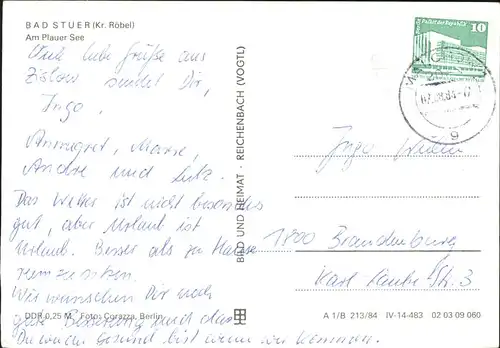 BAD STUER (Kr. Röbel)
Am Plauer See
Viele liebe Grüße aus
Zislow sendet Dir,
Ingo.
Annegret,
Andre und Lutz.
Das Wetter ist nicht besonders
gut, aber Urlaub ist
Urlaub. Besser als zu Hause
rumzusitzen.
Wir wünschen Dir noch
gute Besserung und das
Du wieder Gesund bist wenn wir kommen.
DDR 0,25 M Foto: Corazza, Berlin
BILD UND HEIMAT · REICHENBACH (VOGTL)
10
Palast der Republik
9
Ingo
1800 Brandenburg
Str. 3
A 1/B 213/84 IV-14-483 02 03 09 060